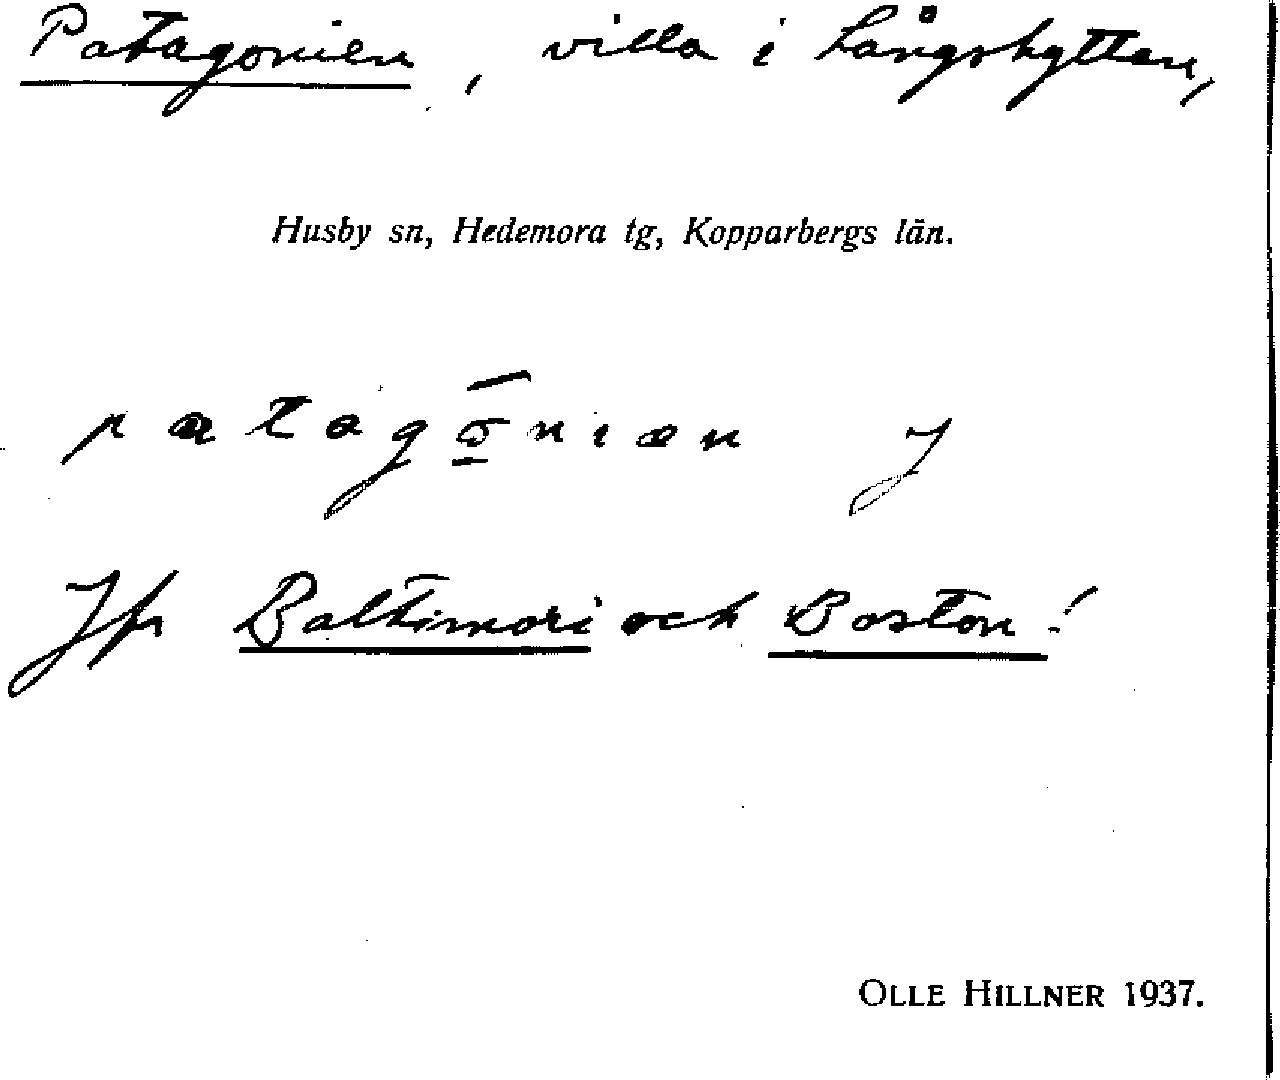 Patagonien, villa i Långshyttan,
Husby sn, Hedemora tg, Kopparbergs län.
patagōnien J
Jfr Baltimori och Boston!
OLLE HILLNER 1937.